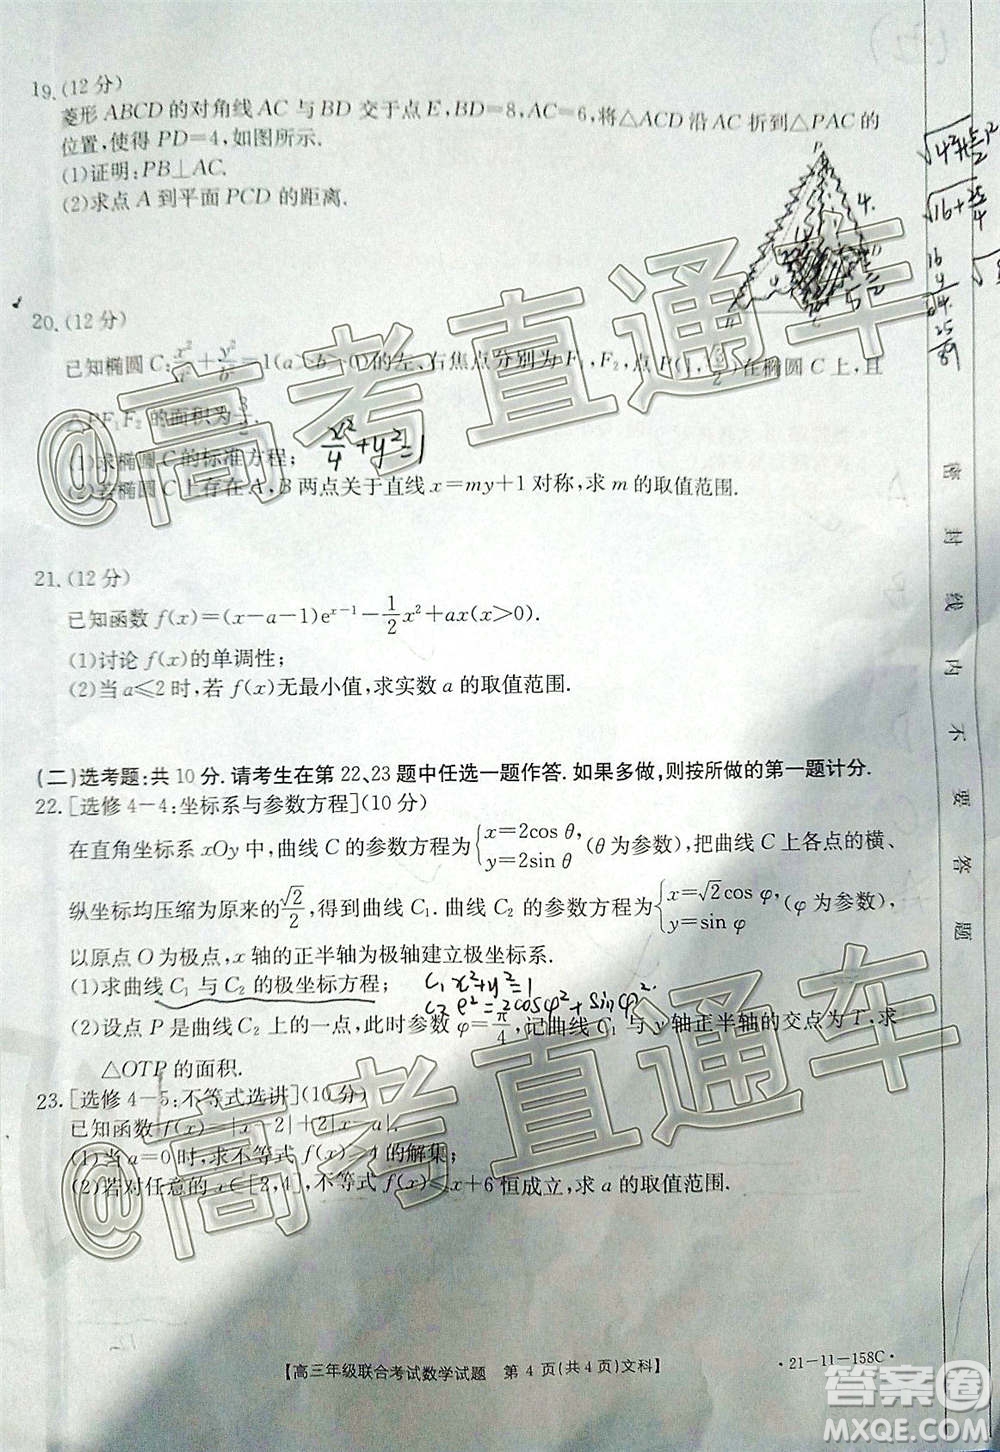 19.(12分)
菱形ABCD的对角线AC与BD交于点E,BD=8,AC=6,将△ACD沿AC折到△PAC的
位置,使得PD=4,如图所示.
(1)证明:PB⊥AC.
(2)求点A到平面PCD的距离.
20.(12分)
已知椭圆C:x²/a²+y²/b²=1(a>b>0)的左、右焦点分别为F₁,F₂,点P(1,3/2)在椭圆C上,且
△PF₁F₂的面积为3/2.
(1)求椭圆C的标准方程; x²/4+y²=1
(2)若椭圆C上存在A,B两点关于直线x=my+1对称,求m的取值范围.
21.(12分)
已知函数f(x)=(x-a-1)eˣ⁻¹-1/2x²+ax(x>0).
(1)讨论f(x)的单调性;
(2)当a≤2时,若f(x)无最小值,求实数a的取值范围.
(二)选考题:共10分.请考生在第22、23题中任选一题作答.如果多做,则按所做的第一题计分.
22.[选修4-4:坐标系与参数方程](10分)
在直角坐标系xOy中,曲线C的参数方程为{x=2cos θ, y=2sin θ (θ为参数),把曲线C上各点的横、
纵坐标均压缩为原来的√2/2,得到曲线C₁.曲线C₂的参数方程为{x=√2cos φ y=sin φ (φ为参数),
以原点O为极点,x轴的正半轴为极轴建立极坐标系.
(1)求曲线C₁与C₂的极坐标方程; C₁ x²+y²=1
C₂ ρ²=2cosφ²+sinφ²
(2)设点P是曲线C₂上的一点,此时参数φ=π/4,记曲线C₁与y轴正半轴的交点为T,求
△OTP的面积.
23.[选修4-5:不等式选讲](10分)
已知函数f(x)=|x-2|+|2x-a|.
(1)当a=0时,求不等式f(x)>4的解集;
(2)若对任意的x∈[2,4],不等式f(x)≤x+6恒成立,求a的取值范围.
【高三年级联合考试数学试题 第4页(共4页)文科】
·21-11-158C·
密封线内不要答题
@高考直通车
@高考直通车
答案圈
MXQE.COM